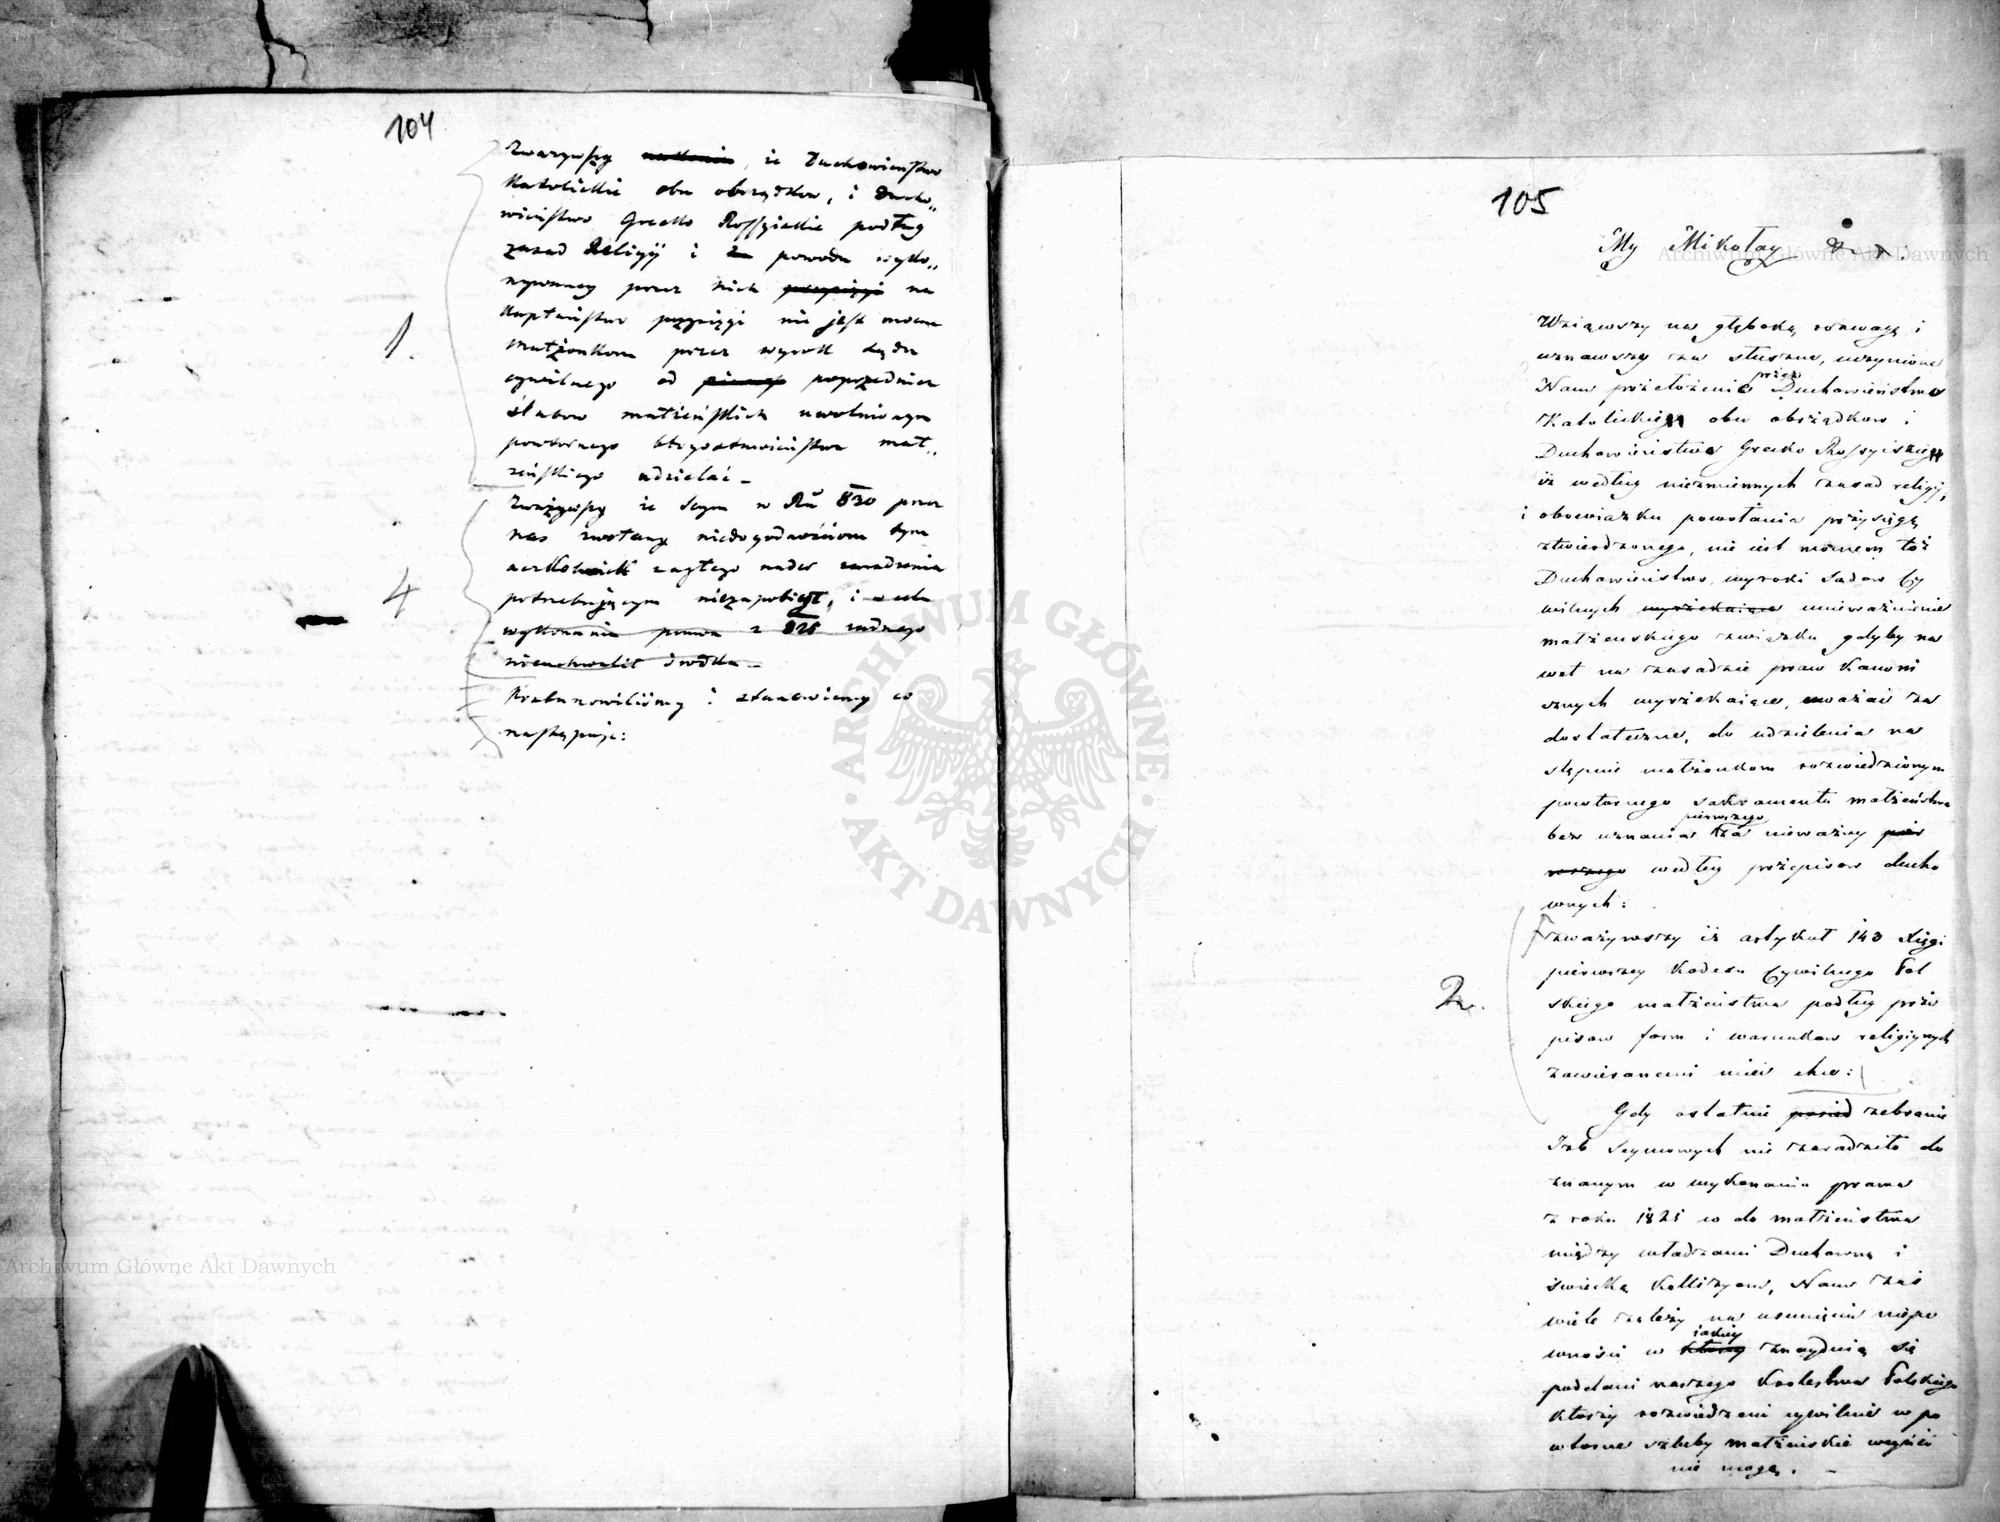 104
Zważywszy, że Duchowieństwo
Katolickie obu obrządków, i Ducho„
wieństwo Grecko Rossyiskie podług
zasad Religyi i z powodu wyko„
nywaney przez nich przysięgi na
Kapłaństwo przysięgi nie jest mocne
Małżonkom przez wyrok Sądu
cywilnego od poprzednich
ślubow małżeńskich uwolnionym
powtórnego błogosławieństwa mał„
żeńskiego udzielać –
1.
Zważywszy że Seym w Ru 830 przez
nas zwołany niedogodnościom tym
aczkolwiek nagłego nader zaradzenia
potrzebującym niezapobiegł, i w celu
wykonania prawa z 825 żadnego
nieuchwalił środka –
4
Postanowiliśmy i stanowiemy co
następuje:
105
My Mikołay
Wziąwszy na głęboką rozwagę i
uznawszy za słuszne, uczynione
Nam przełożenie przez Duchowieństwo
Katolickie obu obrządkow i
Duchowieństwo Grecko Rossyiskie
iż według niezmiennych zasad religij,
i obowiązku powołania przysięgą
ztwierdzonego, nie iest mocnem toż
Duchowieństwo, wyroki Sądow Cy
wilnych wyrzekaiące unieważnienie
małżeńskiego związku gdyby na
wet na zasadzie praw kanoni
cznych wyrzekaiące, uważać za
dostateczne, do udzielenia na
stępnie małżonkom rozwiedzionym
powtornego sakramentu małżeństwa
bez uznania za pierwszego nieważny pier
wszego według przepisow ducho
wnych:
2.
zważywszy iż artykuł 143 Xięgi
pierwszey Kodexu Cywilnego Pol
skiego małżeństwa podług prze
pisow form i warunkow religiynych
zawieranemi mieć chce:
Gdy ostatnie zebranie
Izb Seymowych nie zaradziło do
znanym w wykonaniu prawa
z roku 1825 co do małżeństwa
między władzami Duchowną i
świecką kollizyom, Nam zaś
wiele zależy na usunięciu niepe
wności w iakiey znayduią się
poddani naszego Krolestwa Polskiego
którzy rozwiedzeni cywilnie w po
wtorne szluby małżeńskie weyść
nie mogą. –
Archiwum Główne Akt Dawnych
Archiwum Główne Akt Dawnych
ARCHIWUM GŁÓWNE
AKT DAWNYCH